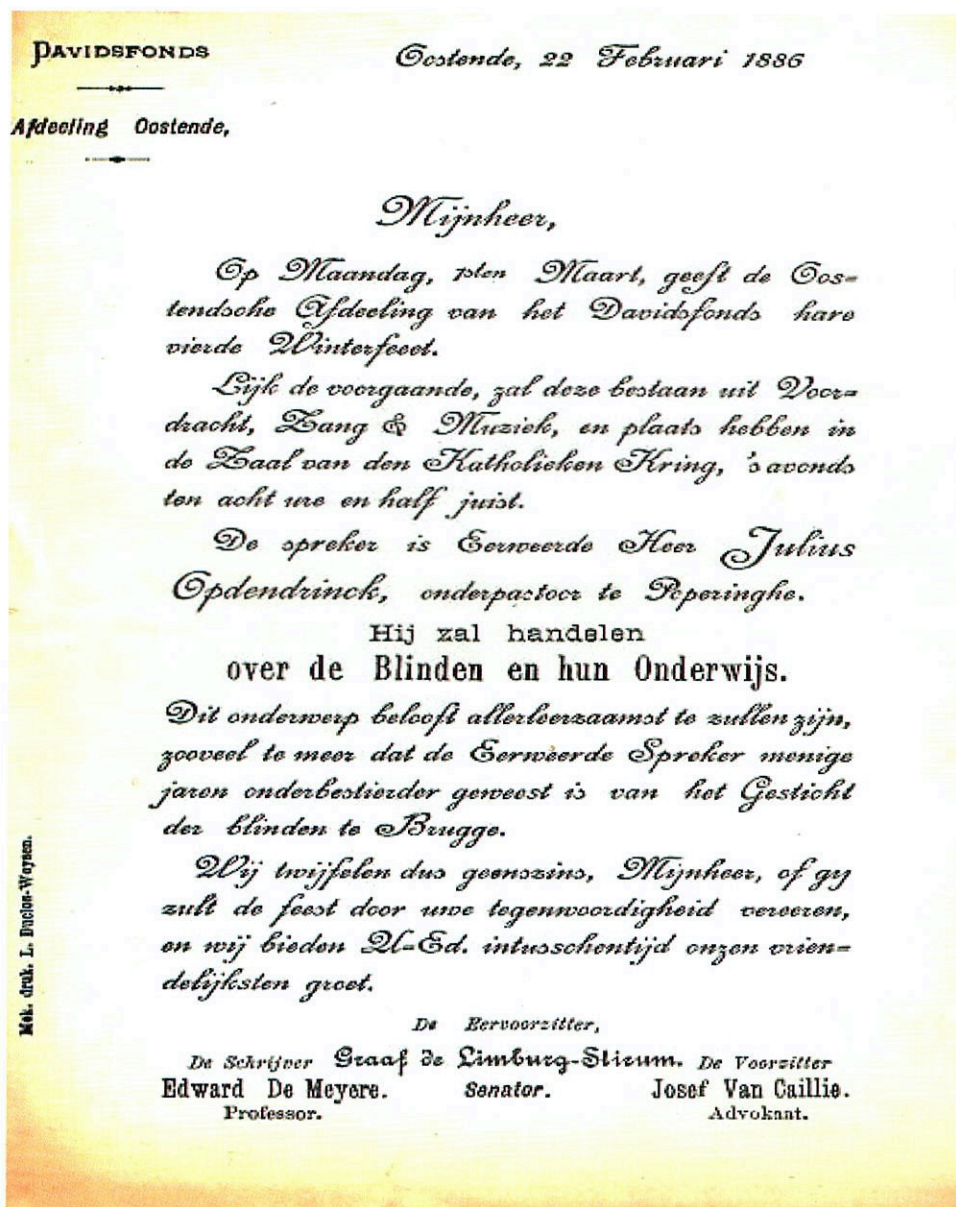 DAVIDSFONDS
Oostende, 22 Februari 1886
Afdeeling Oostende,
Mijnheer,
Op Maandag, 1sten Maart, geeft de Oos=
tendsche Afdeeling van het Davidsfonds hare
vierde Winterfeest.
Lijk de voorgaande, zal deze bestaan uit Voor=
dracht, Zang & Muziek, en plaats hebben in
de Zaal van den Katholieken Kring, 's avonds
ten acht ure en half juist.
De spreker is Eerweerde Heer Julius
Opdendrinck, onderpastoor te Poperinghe.
Hij zal handelen
over de Blinden en hun Onderwijs.
Dit onderwerp belooft allerleerzaamst te zullen zijn,
zooveel te meer dat de Eerweerde Spreker menige
jaren onderbestierder geweest is van het Gesticht
der blinden te Brugge.
Wij twijfelen dus geenszins, Mijnheer, of gy
zult de feest door uwe tegenwoordigheid vereeren,
en wij bieden U=Ed. intusschentijd onzen vrien=
delijksten groet.
De Eervoorzitter,
De Schrijver Graaf de Limburg-Stirum. De Voorzitter
Edward De Meyere. Senator. Josef Van Caillie.
Professor. Advokaat.
Mek. druk. L. Duclos-Weysen.